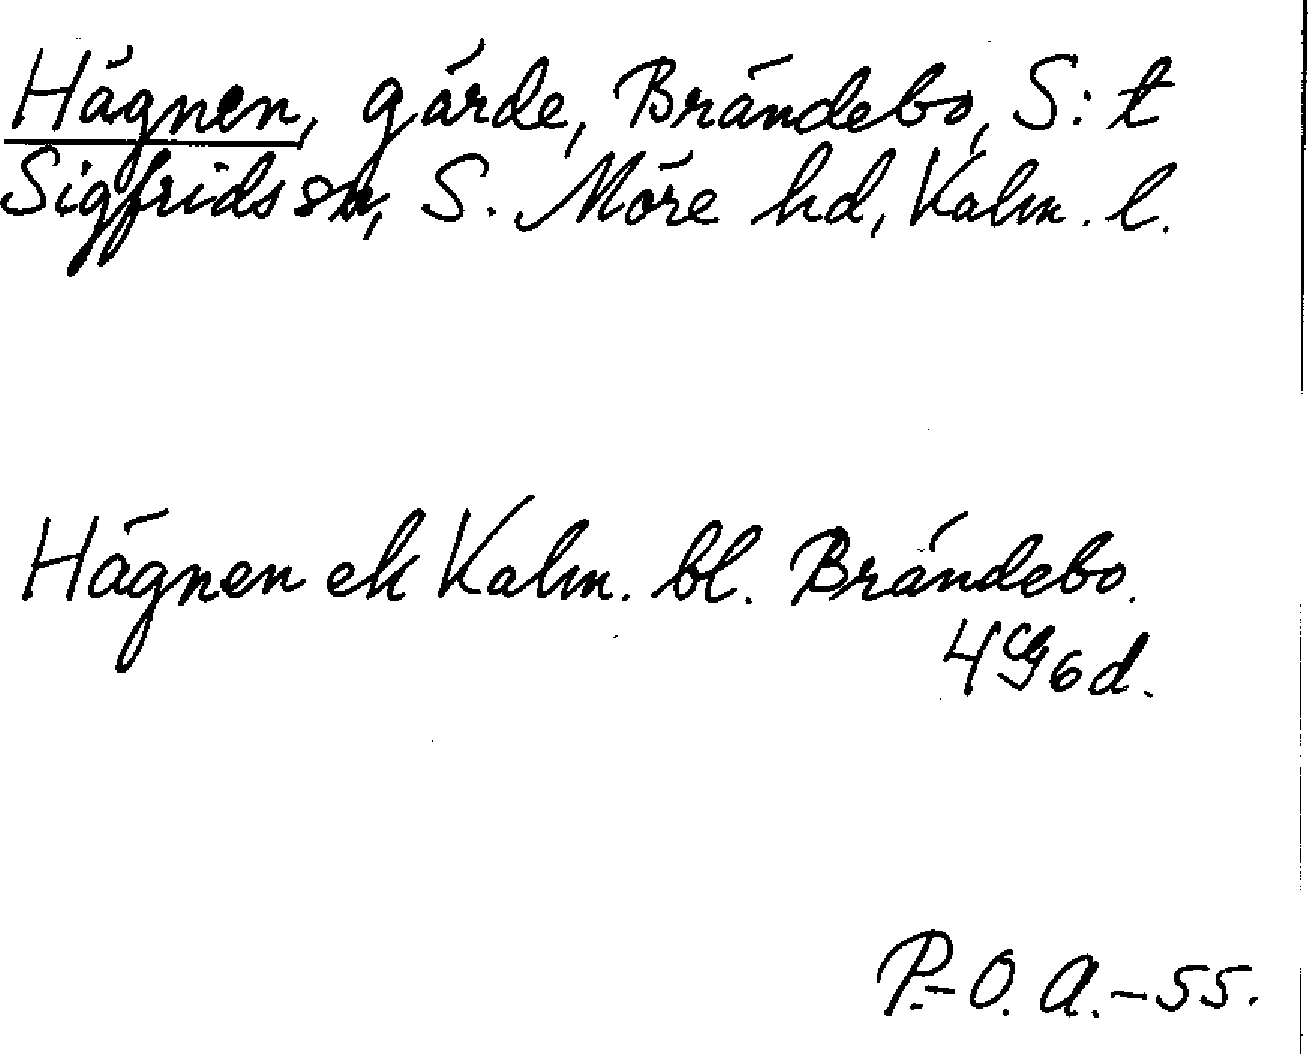 Hägnen, gärde, Brändebo, S:t
Sigfrids sn, S. Möre hd, Kalm. l.
Hägnen ek Kalm. bl. Brändebo.
4G6d.
P.-O. A.-55.